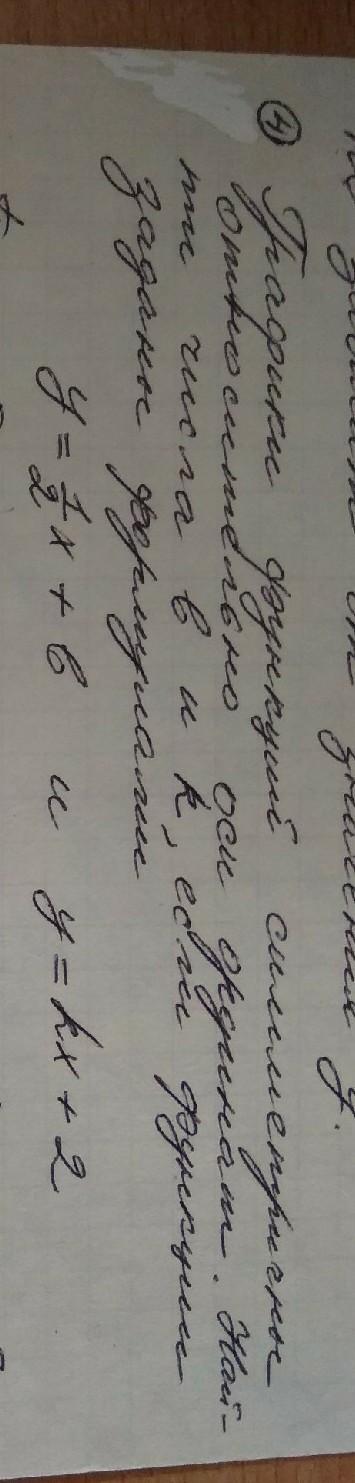 не зависит от значения у.
④ Графики функций симметричны
относительно оси ординат. Най-
ти числа в и k, если функции
заданы формулами
y = 1/2 x + в и y = kx + 2